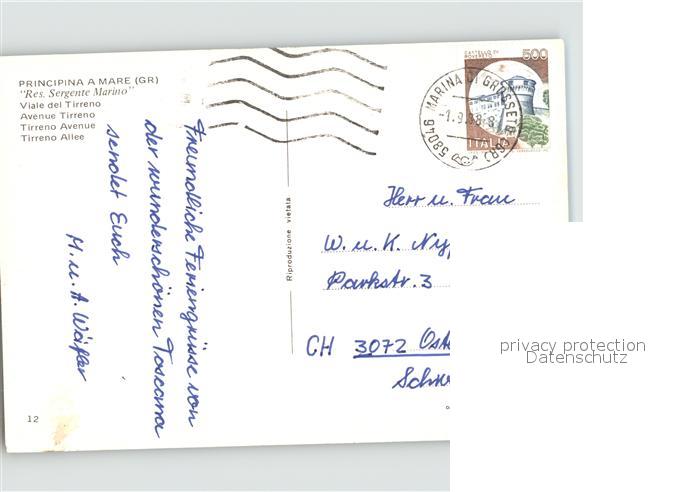 PRINCIPINA A MARE (GR)
"Res. Sergente Marino"
Viale del Tirreno
Avenue Tirreno
Tirreno Avenue
Tirreno Allee
Freundliche Feriengrüsse von
der wunderschönen Toscana
sendet Euch
M. u. A. Wäfler
12
Riproduzione vietata
CASTELLO DI
ROVERETO
500
ITALIA
58046 MARINA DI GROSSETO (GR)
-1.9.88
Herr u. Frau
W. u. K. Ny
Parkstr. 3
CH 3072 Oste
Schw
privacy protection
Datenschutz